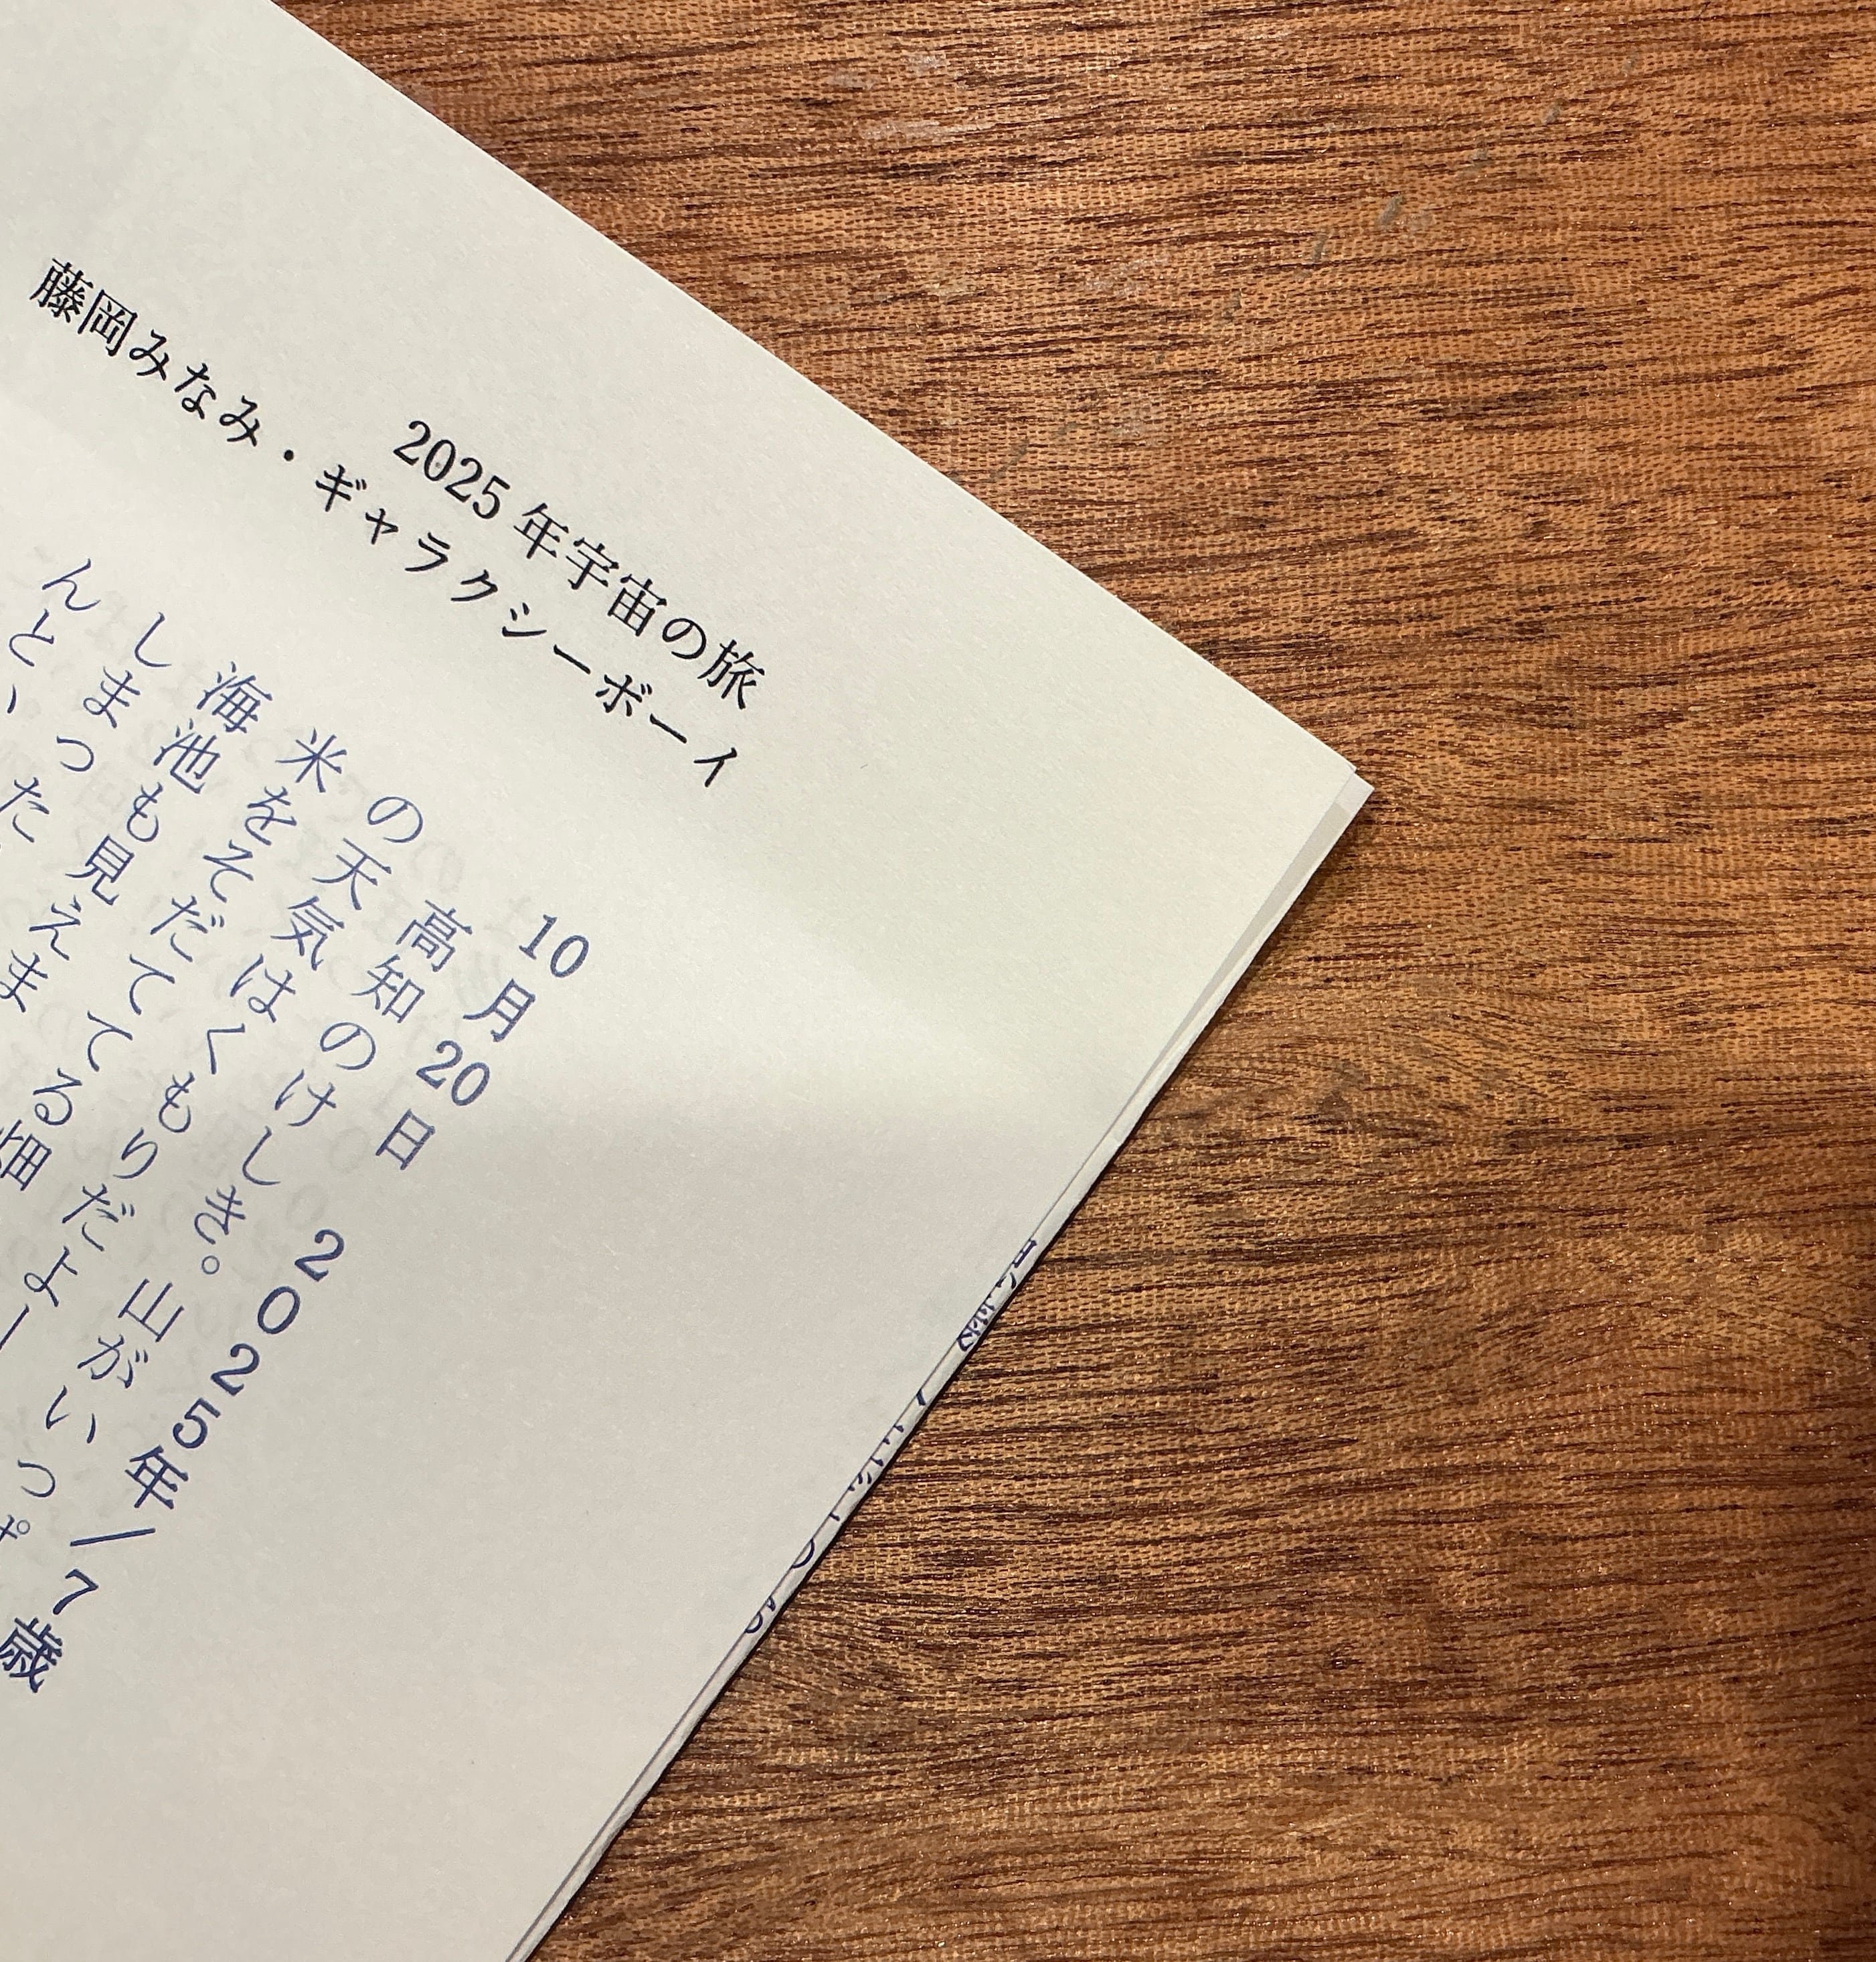 2025 年宇宙の旅
藤岡みなみ・ギャラクシーボーイ
10月20日　2025年／7歳
高知のけしき。山がいっぱ
の天気はくもりだよー
米をそだててる畑
海池も見えま
しまった
んと、